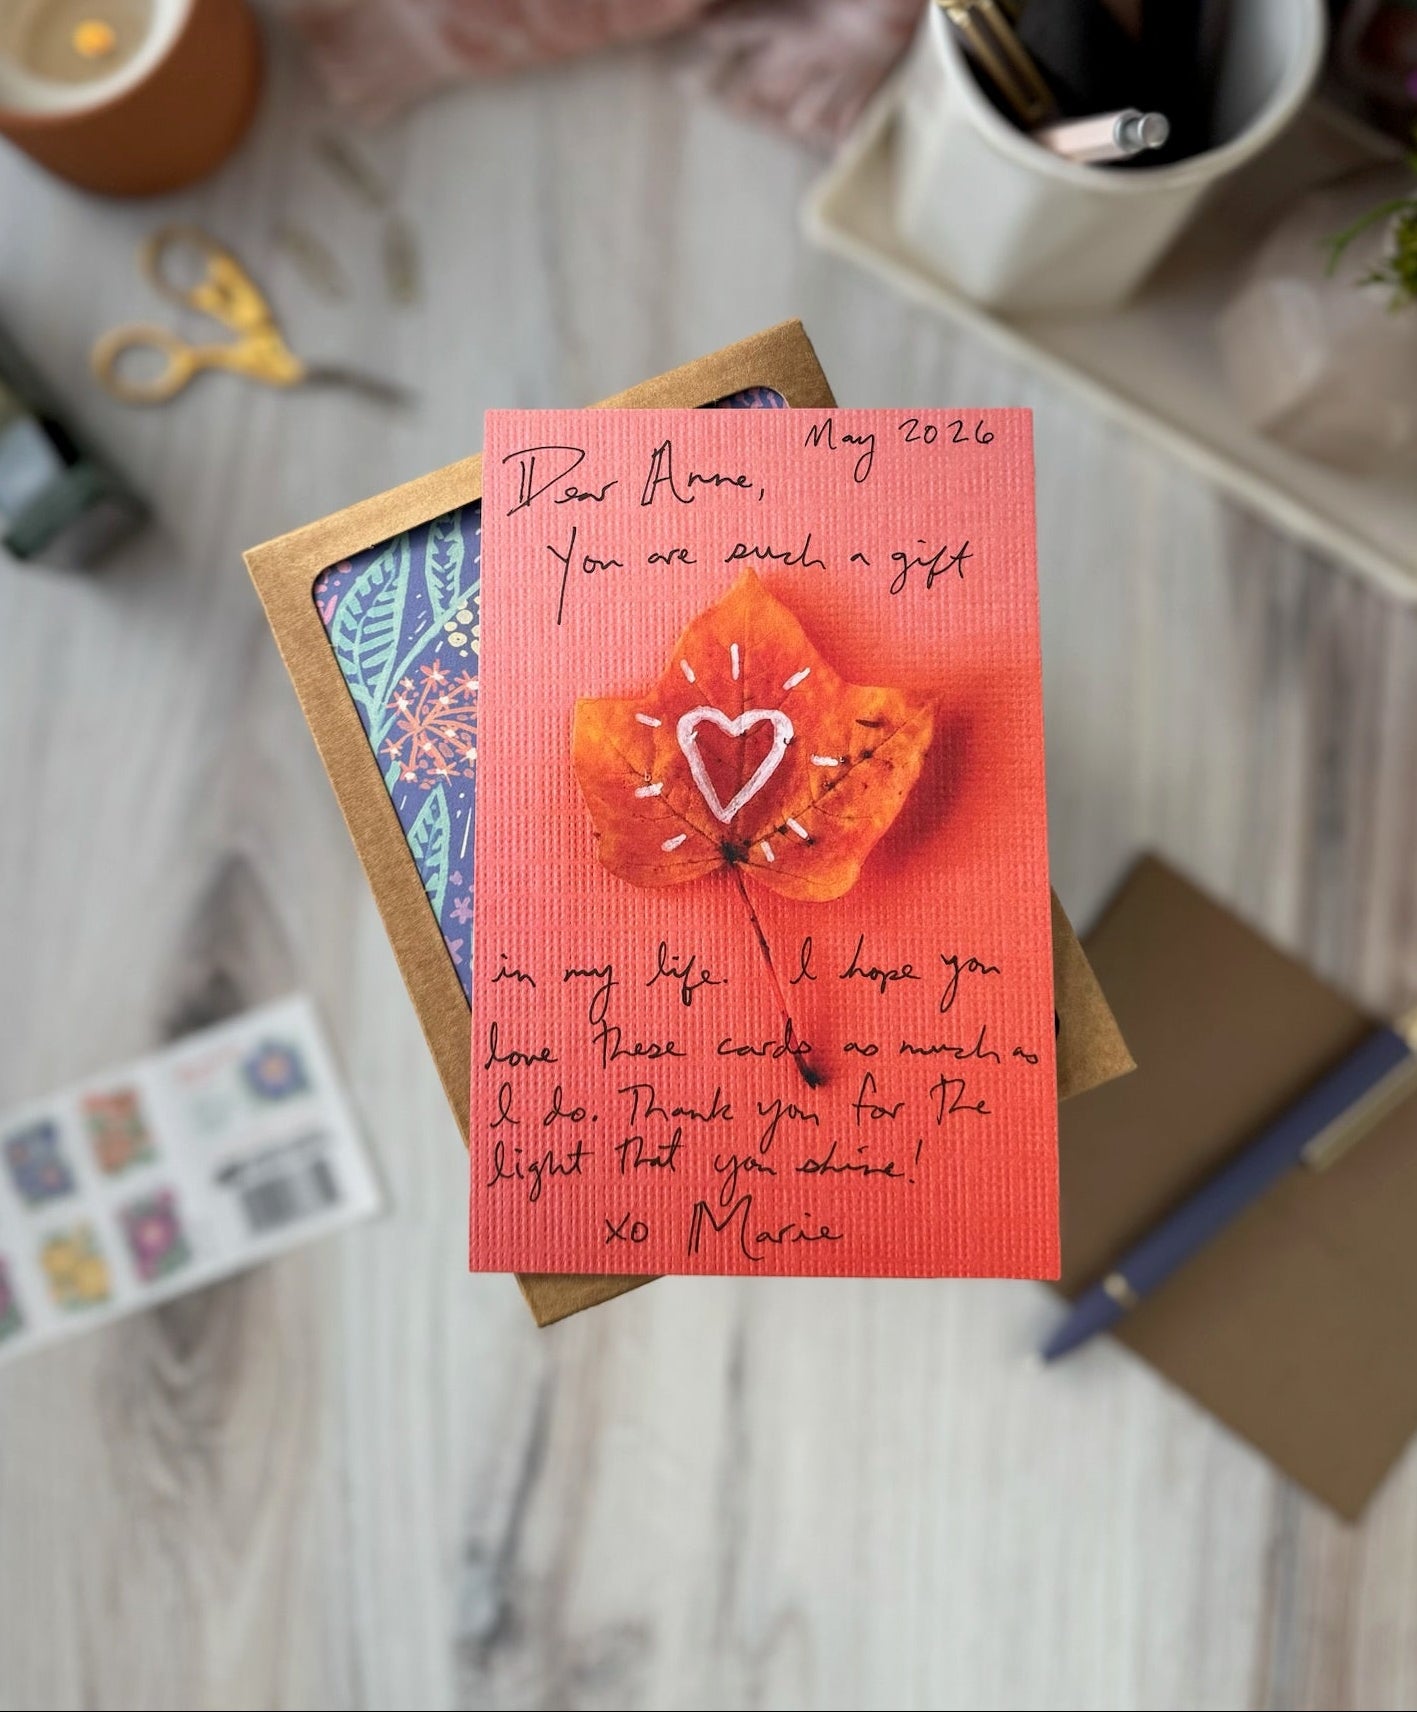 May 2026
Dear Anne,
You are such a gift
in my life. I hope you
love these cards as much as
I do. Thank you for the
light that you shine!
xo Marie